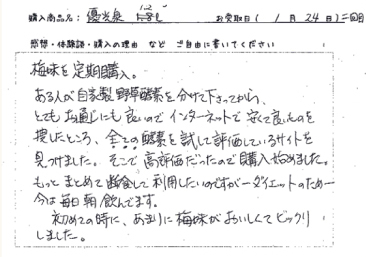 購入商品名: 優光泉 お受取日( 1月24日)二回目
感想・体験談・購入の理由 など ご自由に書いてください
梅味を定期購入。
ある人が自家製野草酵素を分けて下さってから、
とても お通じにも良いので インターネットで 安くて良いものを
捜したところ、全ての酵素を試して評価しているサイトを
見つけました。そこで高評価だったので購入し始めました。
もっと まとめて断食して利用したいのですがーダイエットのためー
今は毎日朝飲んでます。
初めての時に、あまりに梅味がおいしくてビックリ
しました。